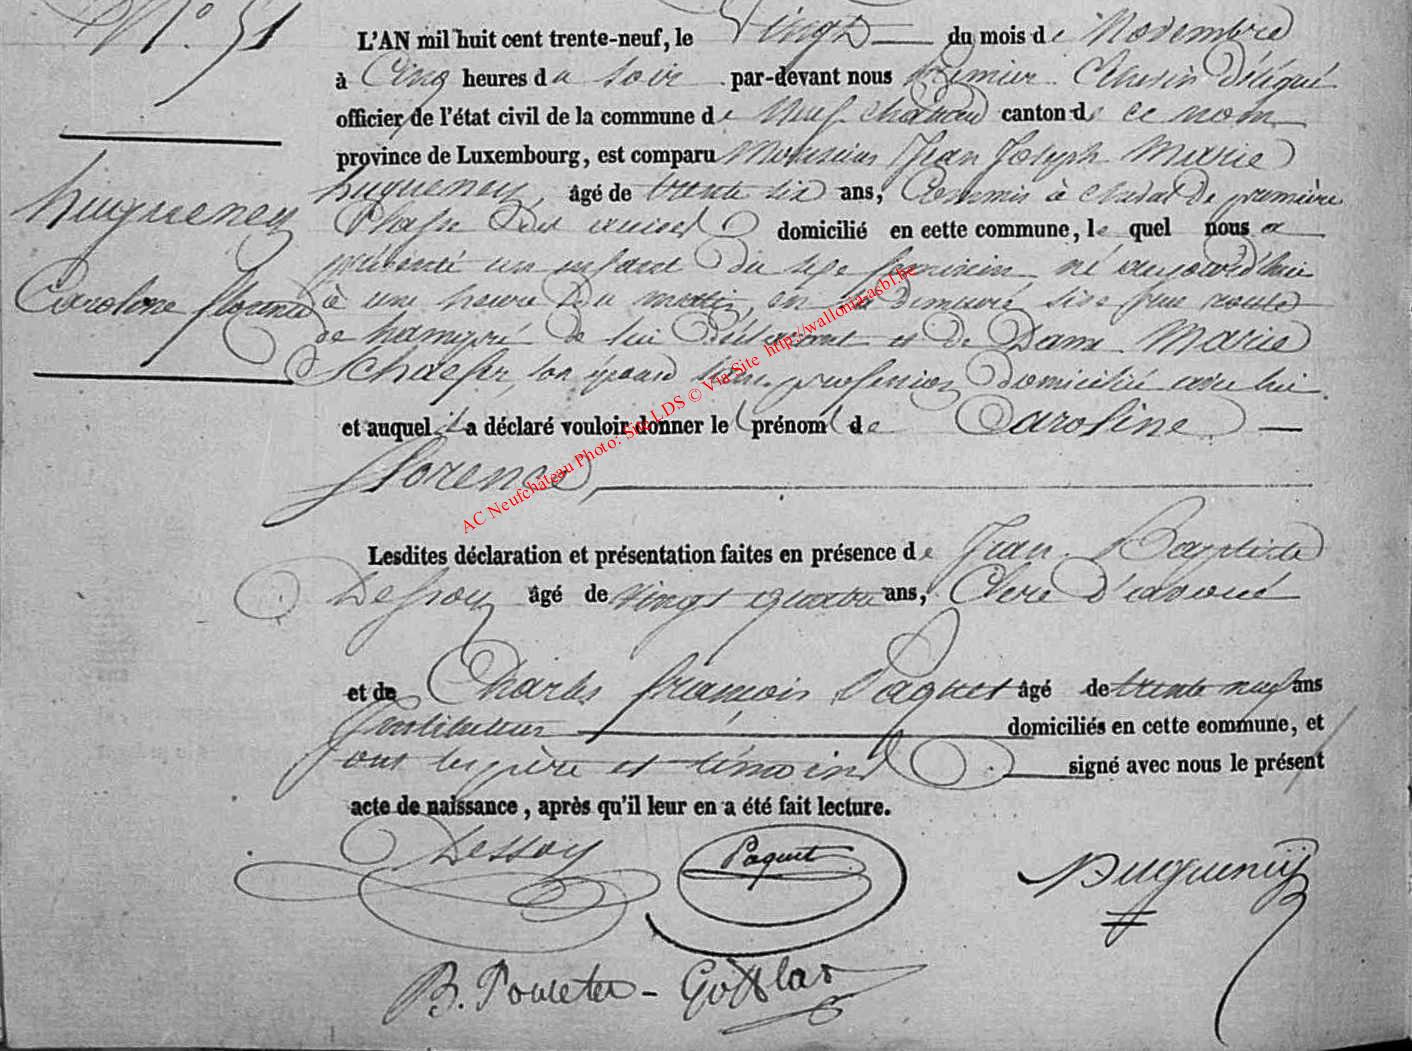 N.º 51
L'AN mil huit cent trente-neuf, le Vingt du mois de Novembre
à Cinq heures du soir par-devant nous premier Echevin délégué
officier de l'état civil de la commune de Neufchateau canton de ce nom
province de Luxembourg, est comparu Monsieur Jean Joseph Marie
hugueney, âgé de trente six ans, Commis à cheval de première
Classe des domicilié en cette commune, lequel nous a
présenté un enfant du sexe feminin né aujourd'hui
à une heure du matin, en sa demeure sise sur route
de hamipré de lui déclarant et de Dame Marie
Schaefer, son épouse sans profession domiciliée avec lui
et auquel il a déclaré vouloir donner le prénom de Caroline
florence,
Hugueney
Caroline florence
Lesdites déclaration et présentation faites en présence de Jean Baptiste
Dessoy âgé de vingt quatre ans, Clerc d'avoué
et de Charles françois Paquet âgé de trente neuf ans
Instituteur domiciliés en cette commune, et
ont les père et témoins signé avec nous le présent
acte de naissance, après qu'il leur en a été fait lecture.
Dessoy Paquet Hugueney
B. Pouceter - Gofflar
AC Neufchâteau Photo: Site LDS © Via Site http://wallonia-asbl.be